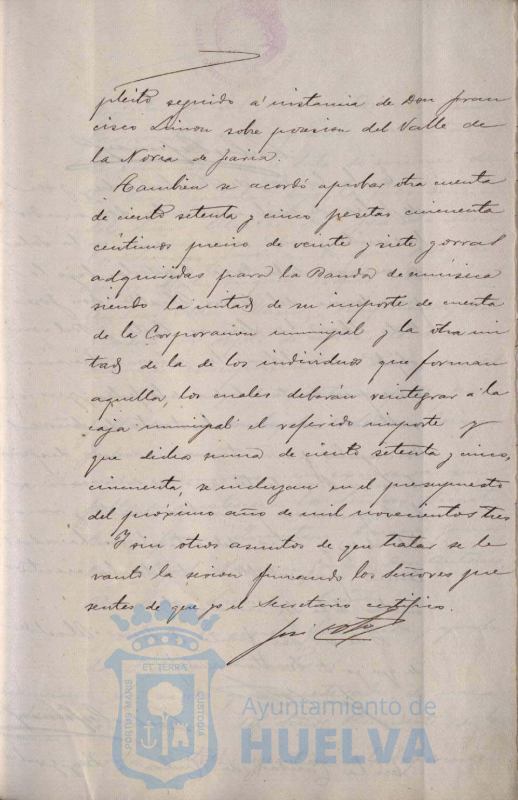 pleito seguido á instancia de Don Fran
cisco Limon sobre posesion del Valle de
la Noria de Faria.
Tambien se acordó aprobar otra cuenta
de ciento setenta y cinco pesetas cincuenta
céntimos precio de veinte y siete gorras
adquiridas para la Banda de música
siendo la mitad de su importe de cuenta
de la Corporacion municipal y la otra mi
tad de la de los individuos que forman
aquella, los cuales deberán reintegrar á la
caja municipal el referido importe y
que dicha suma de ciento setenta y cinco,
cincuenta, se incluyan en el presupuesto
del próximo año de mil novecientos tres
Y sin otros asuntos de que tratar se le
vantó la sesion firmando los Señores pre
sentes de que yo el Secretario certifico.
José
ET TERRA
PORTUS MARIS
CUSTODIA
Ayuntamiento de
HUELVA